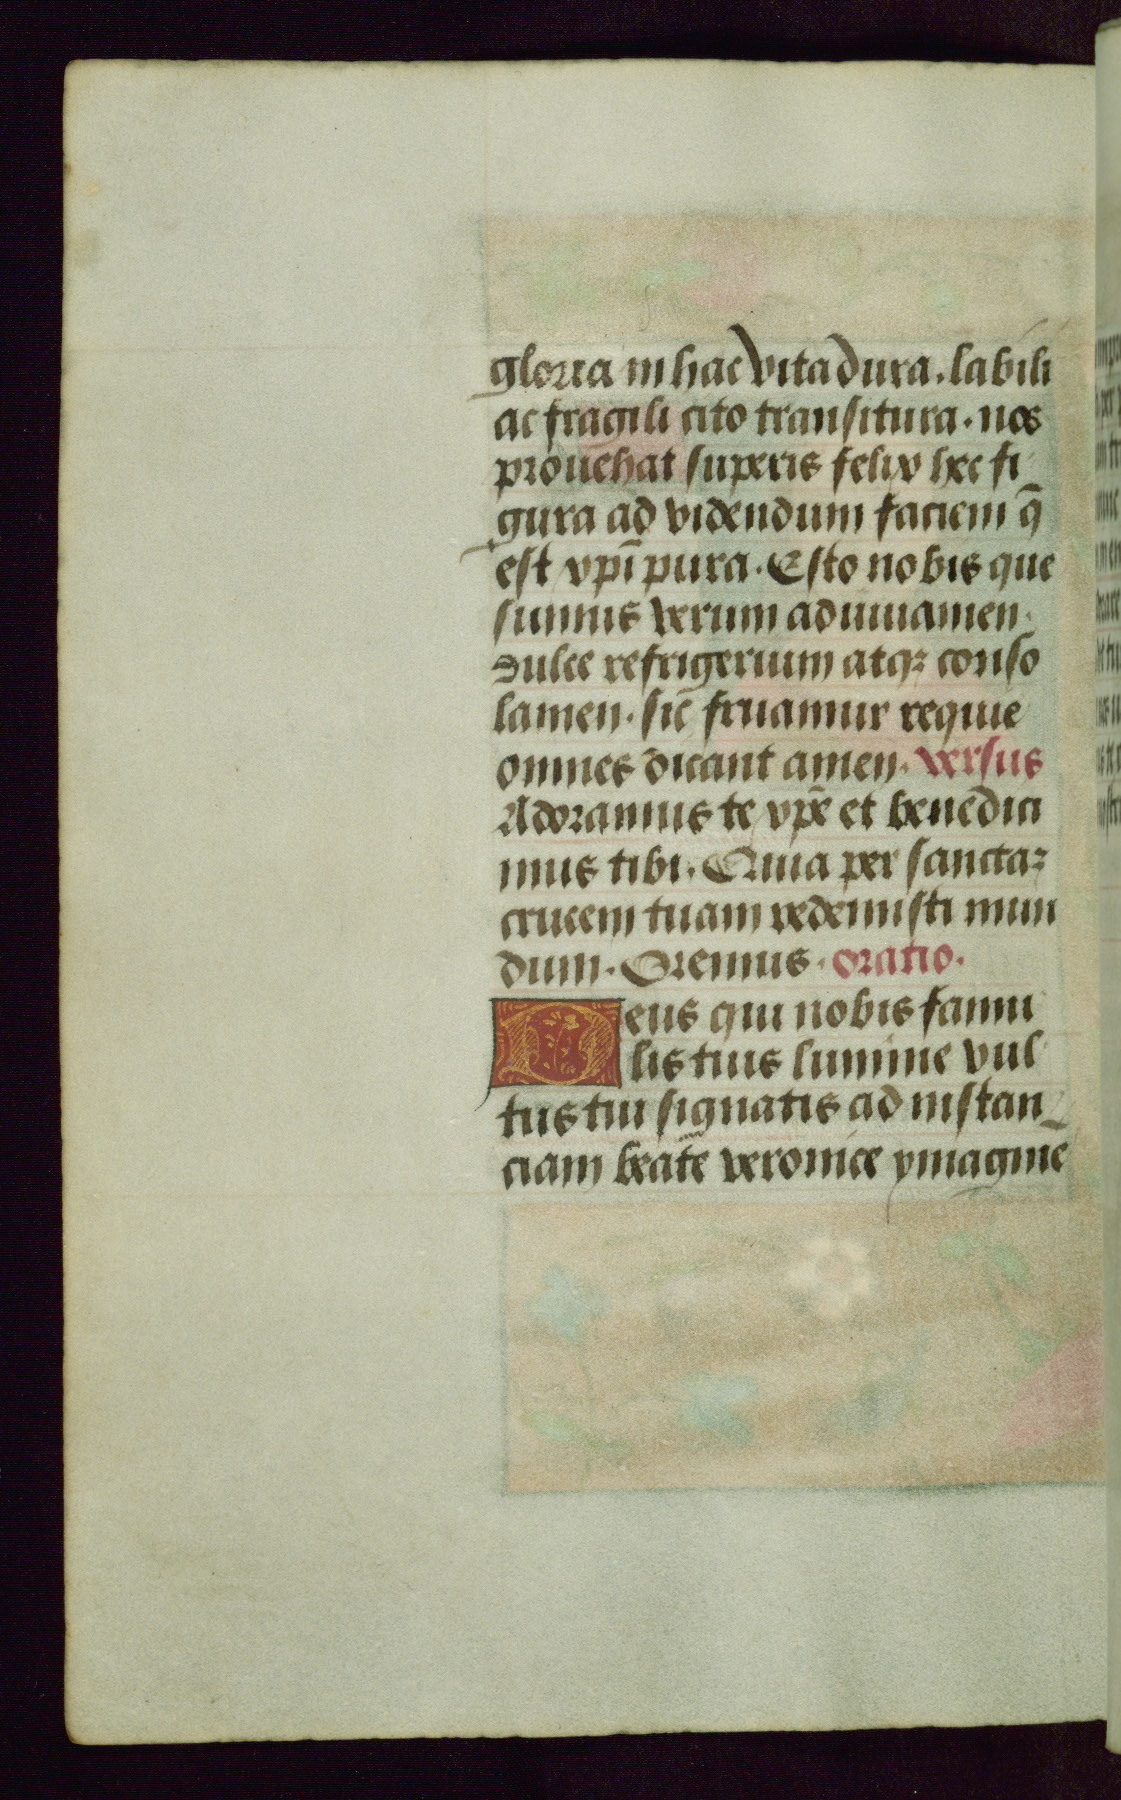 gloria in hac vita dura. labili
ac fragili cito transitura. nos
prouehat superis felix hec fi
gura ad videndum faciem q̄
est xp̄i pura. Esto nobis que
sumus verum adiuuamen.
dulce refrigerium atqꝫ conso
lamen. sic̄ fruamur requie
omnes dicant amen. versus
Adoramus te xp̄e et benedici
mus tibi. Quia per sanctaꝫ
crucem tuam redemisti mun
dum. Oremus. oratio.
Deus qui nobis famu
lis tuis lumine vul
tus tui signatis ad instan
ciam beate veronice ymagine